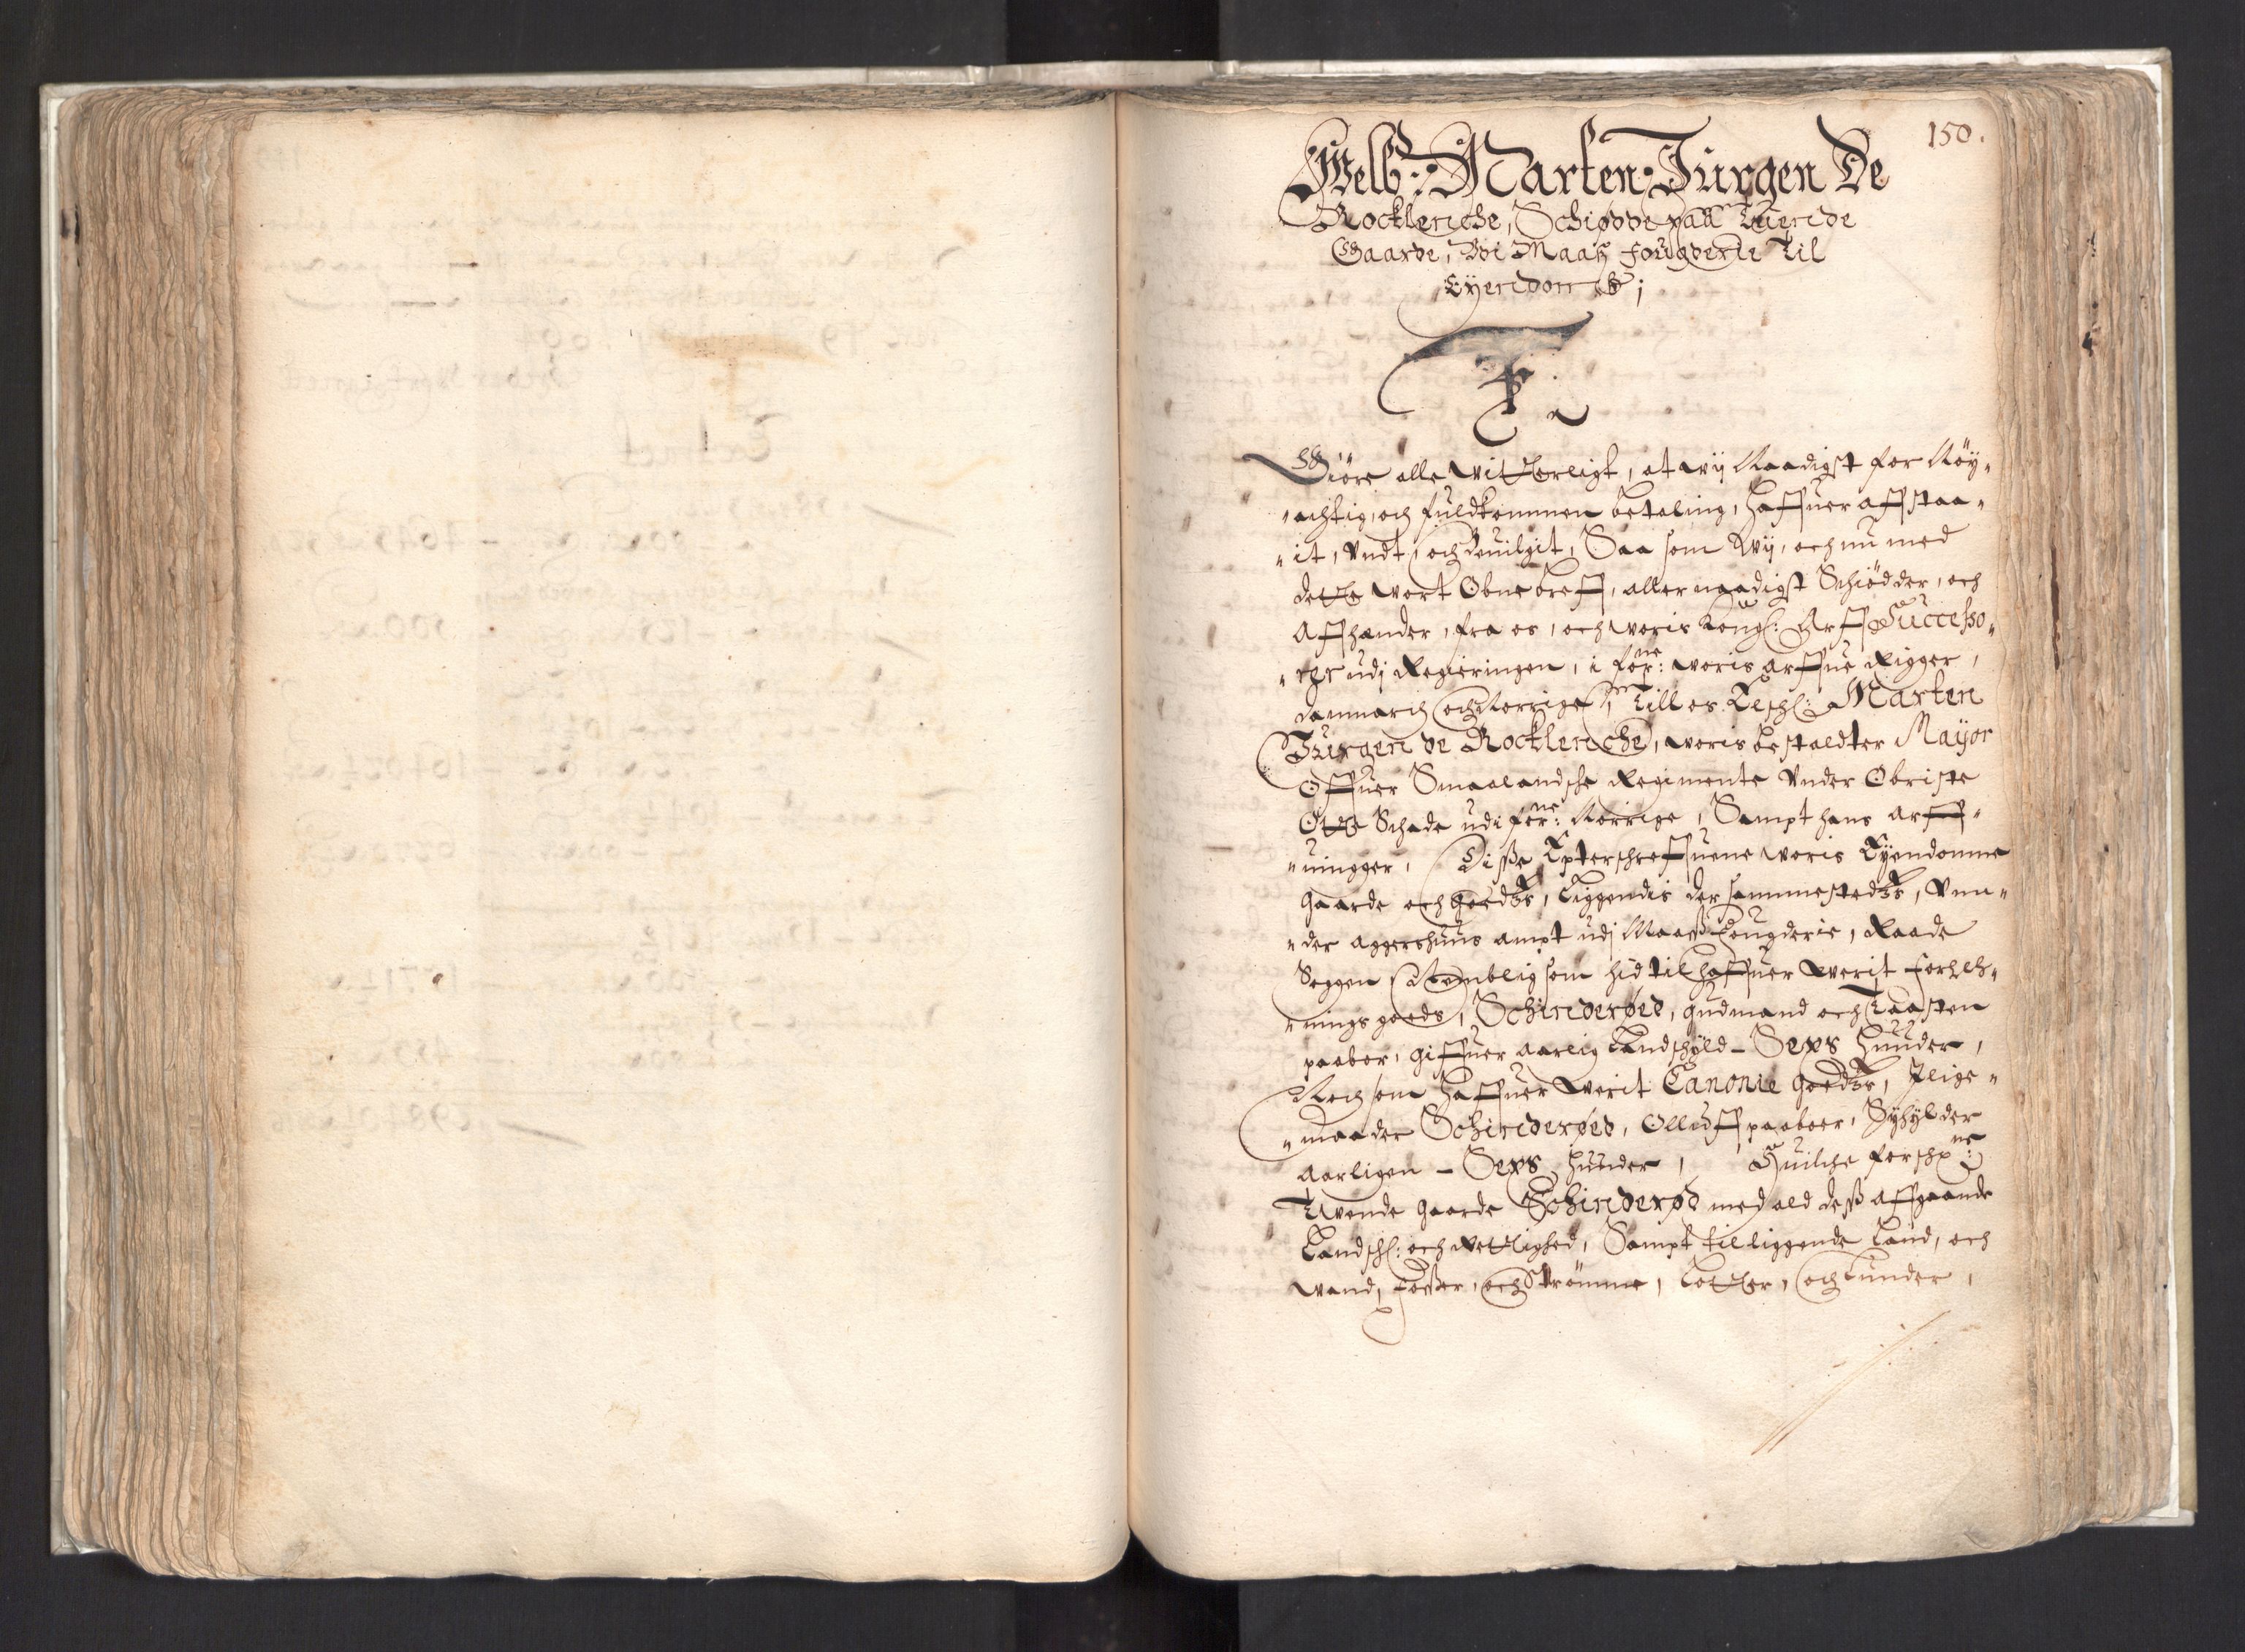 150.
Welb: Marten Jürgen De
Rocklenche, Schiøde paa Tuende
Gaarde, Udi Maass fougderie Til
Eyendomb;
F.
Giöre alle witterligt, at wij Naadigst for Nöy„
„achtig, och fuldkommen betaling, haffuer affstaa„
„it, Undt, och beuilgit, Saa som Wij, och nu med
dette wort Obne breff, allernaadigst Schiödder, och
Affhænder, fra os, och woris Kongl: Arff Successo„
„rer udj Regieringen, i forne: woris arffue Rigger,
Danmarch och Norrige, Till os Elschl: Marten
Jürgen de Rocklenche, woris bestaldter Mayor
Offuer Smaalandsche Regimente Under Obriste
Otte Schade udi forne: Norrige, Sampt hans arff„
„uingger, Disse Epterschreffuene woris Eyendomme
gaarde och goedtz, Liggendis dersammestedtz, Unn„
„der Aggershuus ampt udj Maass Fougderie, Raade
Soggen Nemblig som hid til haffuer werit forleh„
„nings goeds, Schinderøed, gudmand och Taasten
paaboer, giffuer aarlig Landschyld – Sexs Huuder,
Noch som haffuer werit Canonie goedtz, Jlige„
„maader Schinderøed, Olluff paaboer, Schylder
aarligen – Sexs Huuder, Huilche forschr:ne
Tvende gaarde Schinderød med ald dess affgaaende
Landsch: och Rettighed, Sampt tilliggende Land, och
wand, fosser, och Strömme, Lotter, och Lunder,